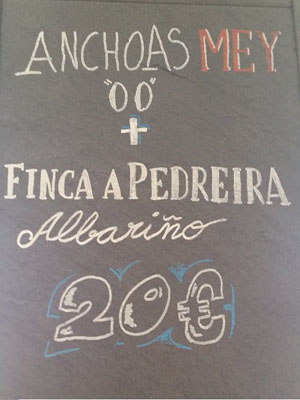 ANCHOAS MEY
"00"
+
FINCA A PEDREIRA
Albariño
20€